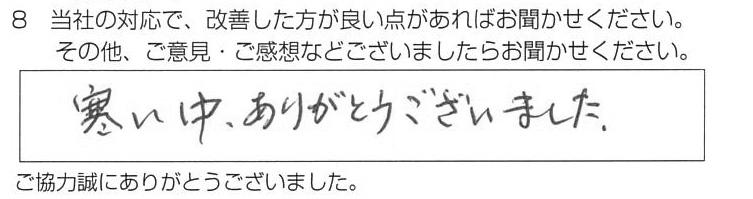 8 当社の対応で、改善した方が良い点があればお聞かせください。
その他、ご意見・ご感想などございましたらお聞かせください。
寒い中、ありがとうございました。
ご協力誠にありがとうございました。